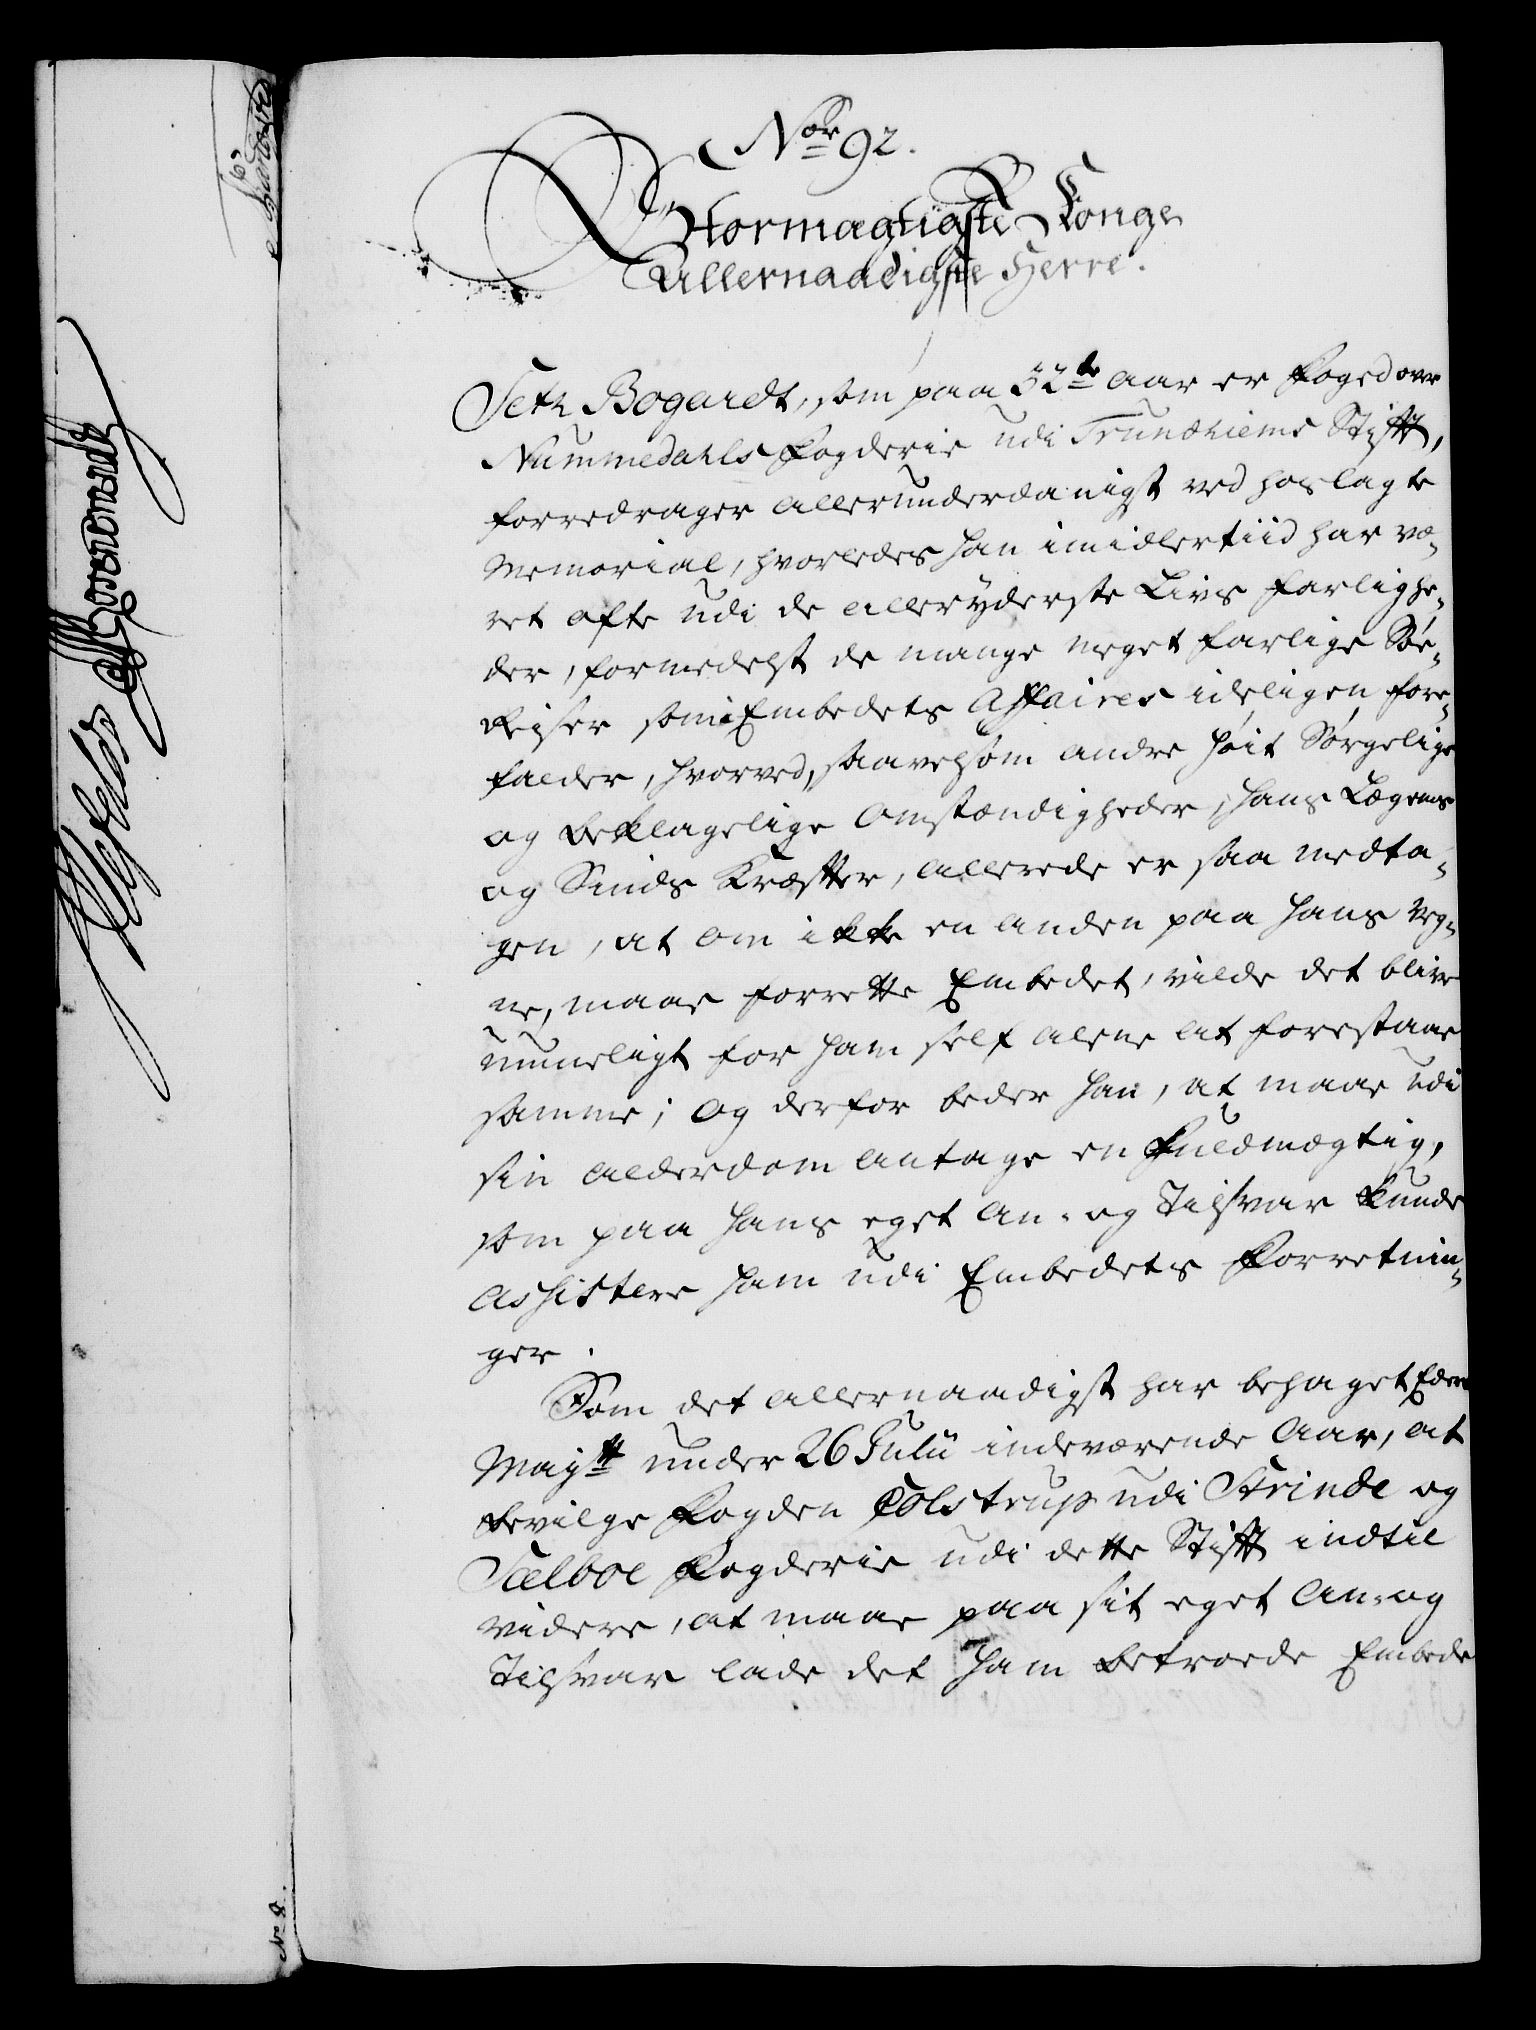 Nor 92.
Stormægtigste Konge
Allernaadigste Herre.
Seth Bogardt, som paa 32te Aar er Foged over
Nummedahls Fogderie udi Trundhiems Stift,
forredrager allerunderdanigst ved hoslagte
Memorial, hvorledes han imidlertiid har væ-
ret ofte udi de alleryderste Livs Farlighe-
der, formedelst de mange meget farlige Søe-
Reiser som i Embedets Affaires ideligen fore-
falder, hvorved, saavelsom andre høit Sørgelige
og beklagelige Omstændigheder, hans Legems
og Sinds Kræfter, allerede er saa medta-
gen, at om ikke en anden paa hans Veg-
ne, maae forrette Embedet, vilde det blive
umueligt for ham self alene at forestaae
samme; og derfor beder han, at maae udi
sin Alderdom antage en Fuldmægtig,
som paa hans eget An- og Tilsvar kunde
assistere ham udi Embedets Forretnin-
ger.
Som det allernaadigst har behaget Eders
Mayt under 26 Julii indeværende Aar, at
bevilge Fogden Colstrup udi Strinde og
Selboe Fogderie udi dette Stift indtil
videre, at maae paa sit eget An- og
Tilsvar lade det ham betroede Embede
No 8.